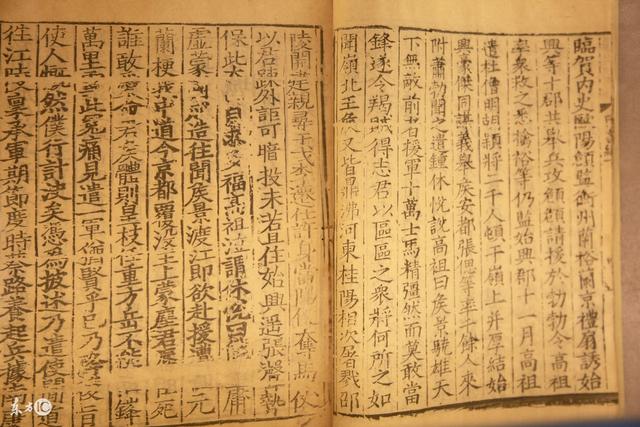 臨賀內史歐陽頠監衡州蘭裕蘭京禮扇誘始
興等十郡共舉兵攻頠頠請援於勃勃令高祖
率衆救之悉擒裕等仍監始興郡十一月高祖
遣杜僧明胡頴將二千人頓于嶺上并厚結始
興豪傑同謀義舉侯安都張偲等率千餘人來
附蕭勃聞之遣鍾休悅說高祖曰侯景驍雄天
下無敵前者援軍十萬士馬精彊然而莫敢當
鋒遂令羯賊得志君以區區之衆將何所之如
聞嶺北王侯又皆鼎沸河東桂陽相次屠戮邵
陵開建親尋干戈李遷仕許身當陽便奪馬仗
以君疎外詎可暗投未若且住始興遙張聲勢
保此太多福高祖泣謂休悅曰庸
虛蒙造往聞侯景渡江即欲赴援遭元
蘭梗我中道今京都覆沒主上蒙塵君死
誰敢命君侯體則皇枝任重方岳不能鋒
萬里此冤痛見遣一軍猶賢乎已乃旨
使人慨然僕行計決矣憑為披述乃遣使間道
往江陵稟承軍期節度時蔡路養起兵據南